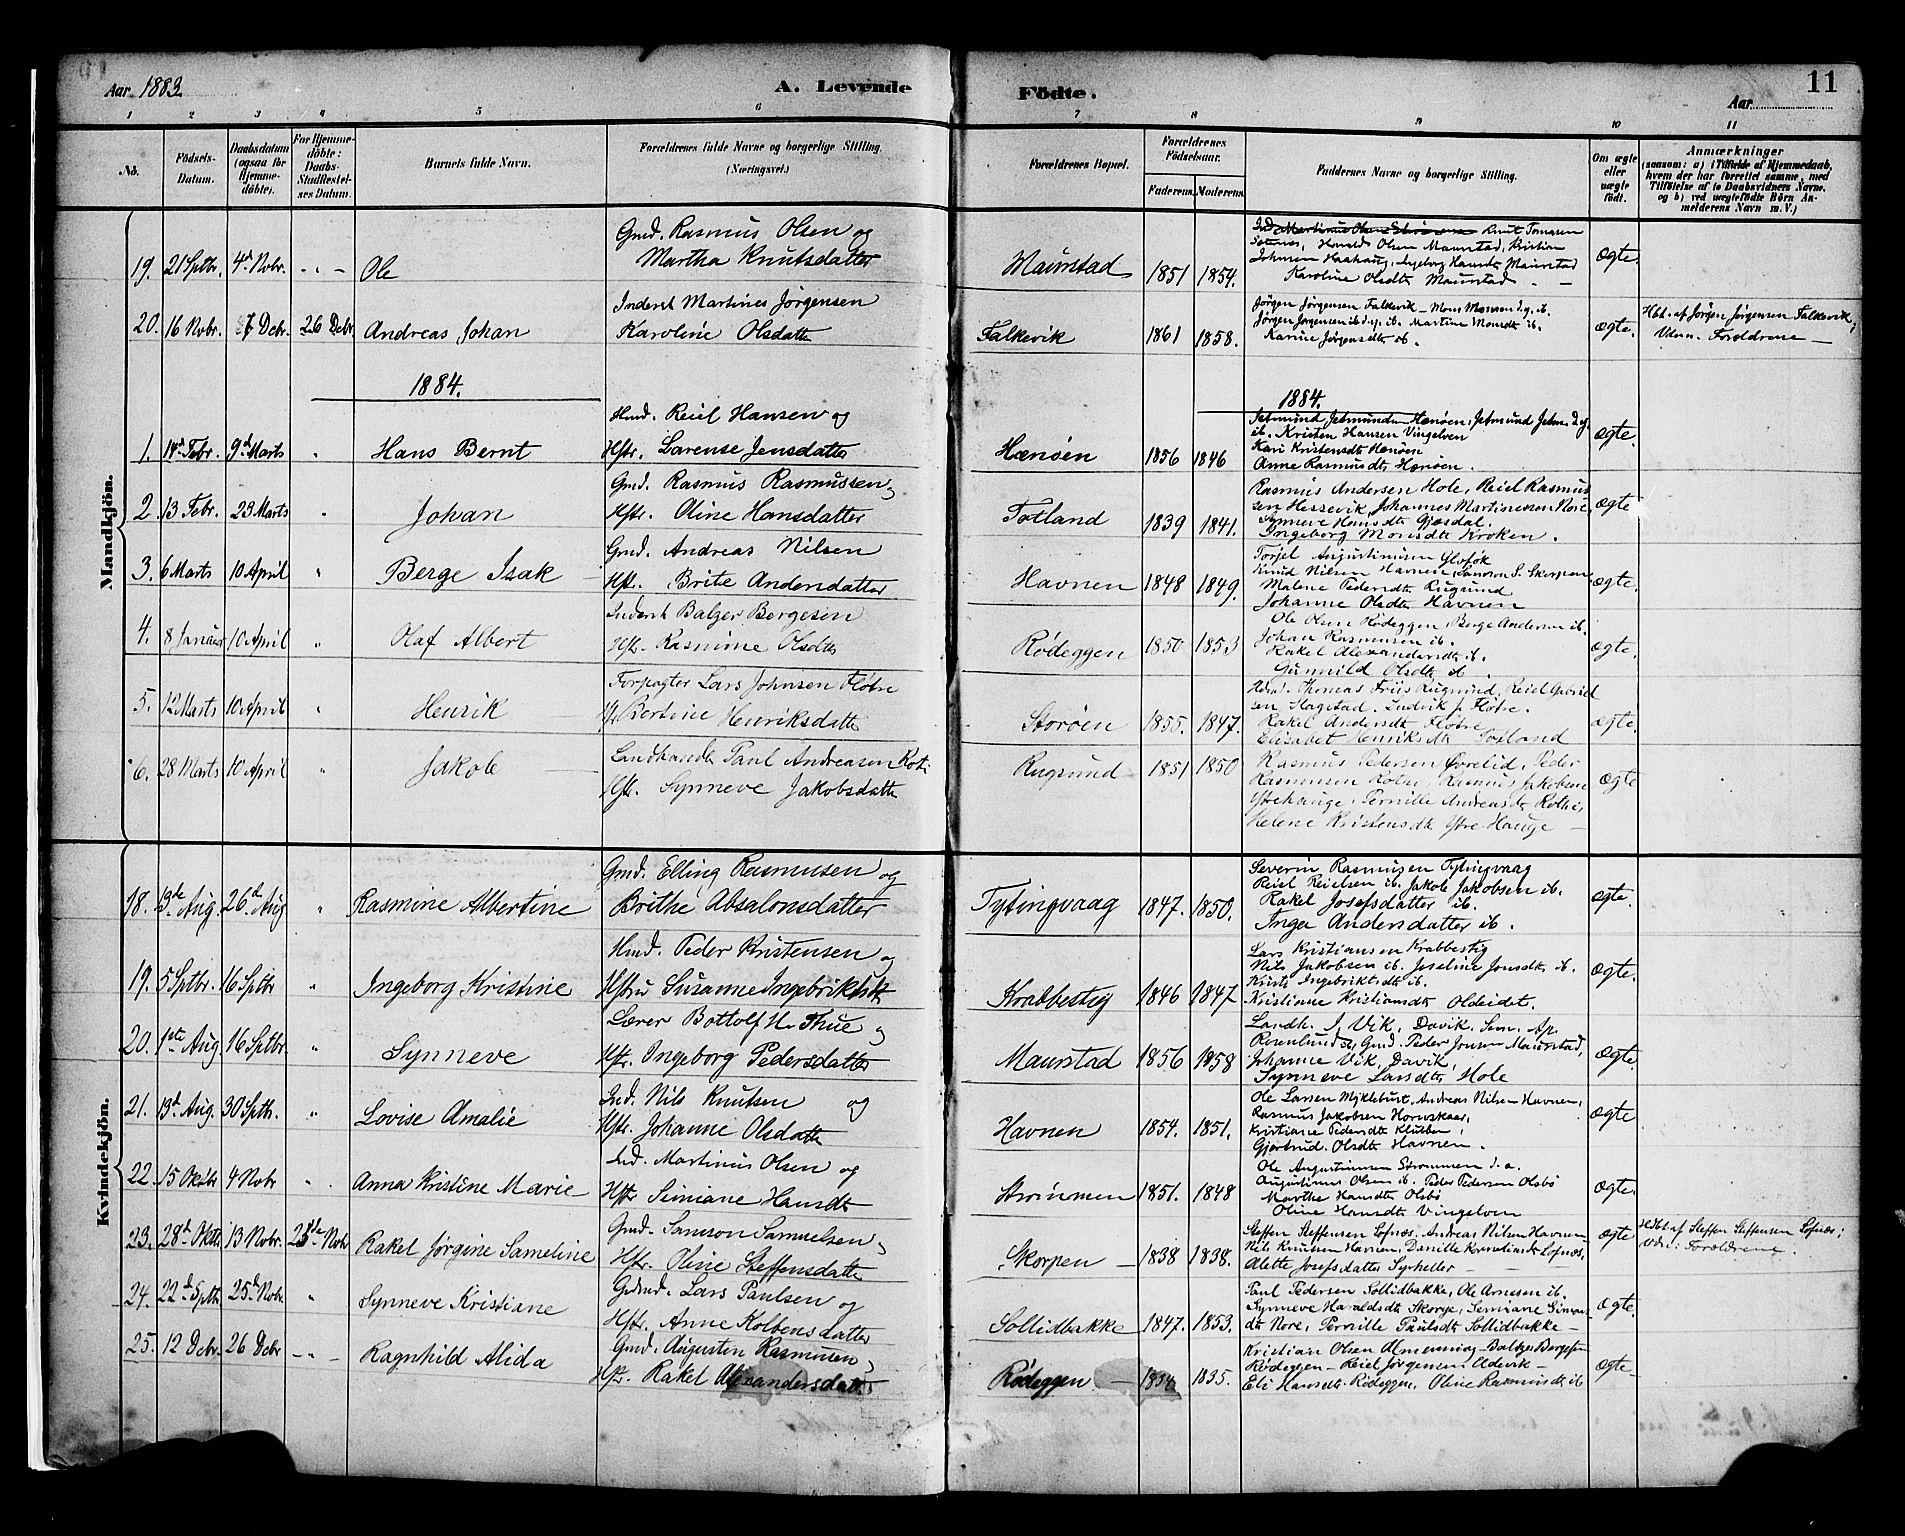 Aar 1883
A. Levende Födte.
11
Aar
1 2 3 4 5 6 7 8 9 10 11
No.
Födsels-Datum.
Daabsdatum (ogsaa for Hjemmedöbte).
For Hjemmedöbte: Daabs Stadfæstelses Datum.
Barnets fulde Navn.
Forældrenes fulde Navne og borgerlige Stilling. (Næringsvei.)
Forældrenes Bopæl.
Forældrenes Födselsaar.
Faderens. Moderens.
Faddernes Navne og borgerlige Stilling.
Om ægte eller uægte födt.
Anmærkninger
(saasom: a) i Tilfælde af Hjemmedaab, hvem der har forrettet samme, med Tilföielse af to Daabsvidners Navne, og b) ved uægtefödte Börn Anmelderens Navn m. V.)
Mandkjön.
19. 21 Sptbr. 4d Nobr. Ole
Gmd. Rasmus Olsen og
Martha Knutsdatter
Maurstad 1851 1854.
Knut Tomasen
Harald Olsen Maurstad, Kristian
Johnsen Haahaug, Ingeborg Hansdt Maurstad
Karoline Olsdt Maurstad
Ægte.
20. 16 Nobr. 7 Debr. 26 Debr. Andreas Johan
Inderst Martines Jørgensen
Karoline Olsdatter
Falkevik 1861 1858.
Jørgen Jørgensen Falkevik - Mons Monsen d.y. ib.
Jørgen Jørgensen ib d.y. ib. Martine Monsdt ib.
Karine Jørgensdt ib.
Ægte.
Hbt. af Jørgen Jørgensen Falkevik,
Vidn. Forældrene
1884.
1884.
1. 14d Febr. 9d Marts Hans Bernt
Hmd. Reiel Hansen og
Hstr. Larense Jensdatter
Hænøen 1856 1846
Jetmund Jetmundsen Hænøen, Jetmund Jetm. d.y.
ib. Kristen Hansen Vingelven
Kari Kristensdt Hænøen
Anne Rasmusdt Hænøen.
Ægte.
2. 13 Febr. 23 Marts Johan
Gmd. Rasmus Rasmussen
Hstr. Oline Hansdatter
Totland 1839 1841.
Rasmus Andersen Hole, Reiel Rasmus
sen Hessevik, Johannes Martinessen Nore,
Synneve Hansdt Gjæsdal.
Ingeborg Monsdt Kroken.
Ægte
3. 6 Marts 10 April Berge Isak
Gmd. Andreas Nilsen
Hstr. Brite Andersdatter
Havnen 1848 1849.
Torjel Augustinusen
Knud Nilsen Havnen, Samson S. Skorpen
Malene Pedersdt Rugsund
Johanne Olsdt Havnen
Ægte.
4. 8 Januar 10 April Olaf Albert
Inderst Balzer Bergesen
Hstr. Rasmine Olsdtr
Rødeggen 1850 1853
Ole Olsen Rødeggen Berge Andersen ib.
Johan Rasmussen ib.
Rakel Alexandersdt ib.
Gunnild Olsdt ib.
Ægte.
5. 12 Marts 10 April Henrik
Forpagter Lars Johnsen Fløtre
Bertine Henriksdatter
Storøen 1855. 1847.
Thomas Friis Rugsund, Reiel Gabriel
sen Hagestad. Ludvik J. Fløtre.
Rakel Andersdt Fløtre
Elisabet Henriksdt Totland
Ægte
6. 28 Marts 10 April Jakob
Landhandl. Paul Andreasen Rothe
Hstr. Synneve Jakobsdatter
Rugsund 1851 1850
Rasmus Pedersen Øvrelid, Peder
Rasmussen Rothe, Rasmus Jakobsen
Ytrehauge, Pernille Andreasdt Rothe,
Helene Kristensdt Ytre Hauge
Ægte
Kvindekjön.
18. 13de Aug. 26d Aug Rasmine Albertine
Gmd. Elling Rasmussen og
Brithe Absalonsdatter
Tytingvaag 1847. 1850.
Severin Rasmussen Tytingvaag
Reiel Reielsen ib. Jakob Jakobsen ib.
Rakel Josefsdatter ib.
Inga Andersdatter ib.
Ægte.
19. 5 Sptbr. 16 Sptbr Ingeborg Kristine
Hmd. Peder Kristensen og
Hstru Susanne Ingebriktsdt
Krabbestig 1846 1847
Lars Kristiansen Krabbestig
Nils Jakobsen ib. Joseline Jonsdt ib.
Kristi Ingebriktsdt ib.
Kristianne Kristiansdt Oldeidet.
Ægte.
20. 1ste Aug 16 Sptbr Synneve
Lærer Bottolf H. Thue og
Hstr. Ingeborg Pedersdatter
Maurstad 1856 1858
Landh. J. Vik, Davik, Sem. Ap.
Rosenlund, Gmd. Peder Jonsen Maurstad,
Johanne Vik, Davik,
Synneve Larsdt Hole
Ægte.
21. 13d Aug. 30 Sptb. Lovise Amalie
Ind. Nils Knutsen og
Hstr. Johanne Olsdatter
Havnen 1854. 1851.
Ole Larsen Myklebust, Andreas Nilsen Havnen,
Rasmus Jakobsen Hornskaar,
Kristiane Pedersdt Klubben,
Gjertrud Olsdt Havnen.
Ægte
22. 15 Oktbr 4 Nobr Anna Kristine Marie
Ind. Martinus Olsen og
Hstr Simiane Hansdt
Strømmen 1851. 1848
Ole Augustinusen Strømmen
Augustinus Olsen ib. Peder Pedersen Olsbø
Marthe Hansdt Olsbø
Oline Hansdt Vingelven
Ægte.
23. 28d Oktbr. 13 Nobr. 25de Nobr Rakel Jørgine Sameline
Gmd. Samson Samuelsen
Hstr. Oline Steffensdatter
Skorpen 1838 1838.
Steffen Steffensen Lofnæs, Andreas Nilsen Havnen
Nils Knutsen Havnen, Danille Korneliusdt Lofnæs,
Alette Josefsdatter
Ægte
Hdbt af Steffen Steffensen Lofnæs;
Vidn: Forældrene.
24. 22d Sptb 25d Nobr Synneve Kristiane
Gdmd. Lars Paulsen og
Hstr. Anne Kolbensdatter
Sollidbakke 1847. 1853.
Paul Pedersen Sollidbakke, Ole Arnesen ib.
Synneve Haraldsdt Skorge, Semiane Simons
dt Nore, Pernille Paulsdt Sollidbakke
Ægte
25. 12 Debr. 26 Debr Ragnhild Alida
Gmd. Augusten Rasmusen
Hstr. Rakel Alexandersdatter
Rødeggen 1834 1835.
Kristian Olsen Almenning - Baltzer Bergesen
Rødeggen - Reiel Jørgensen Aldevik
Eli Hansdt Rødeggen, Oline Rasmusdt ib
Ægte